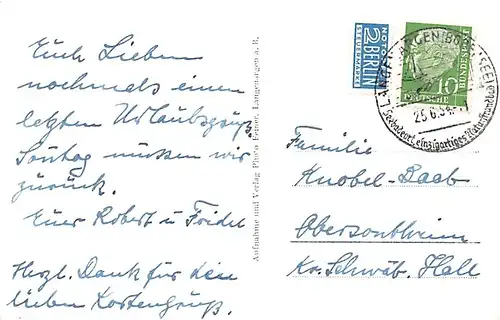 Euch Lieben
nochmals einen
letzten Urlaubsgruß
Sontag müssen wir
zurück.
Euer Robert u Fridel
Herzl. Dank für den
lieben Kartengruß.
Aufnahme und Verlag Photo Langenargen a. B.
NOTOPFER
2 BERLIN
STEUERMARKE
10
DEUTSCHE
BUNDESPOST
LANGENARGEN (BODENSEE)
25.6.54
Seebadeort einzigartiges Naturstrandbad
Familie
Knobel-Baab
Obersontheim
Kr. Schwäb. Hall